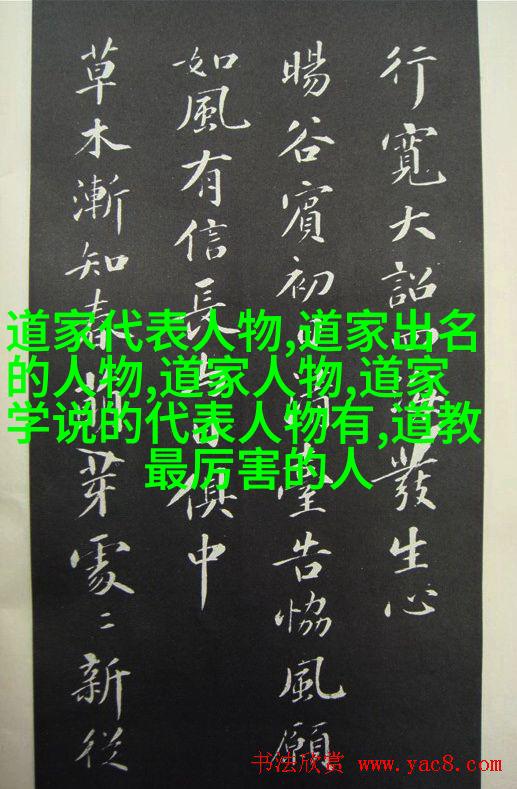 行寬大詔四發生心
暘谷賓初日清臺告協風願
如風有信長與日俱中
草木漸知春萌芽處〻新從
道家代表人物,道家出名
的人物,道家人物,道家
学说的代表人物有,道教
最厉害的人
书法欣赏 www.yac8.com